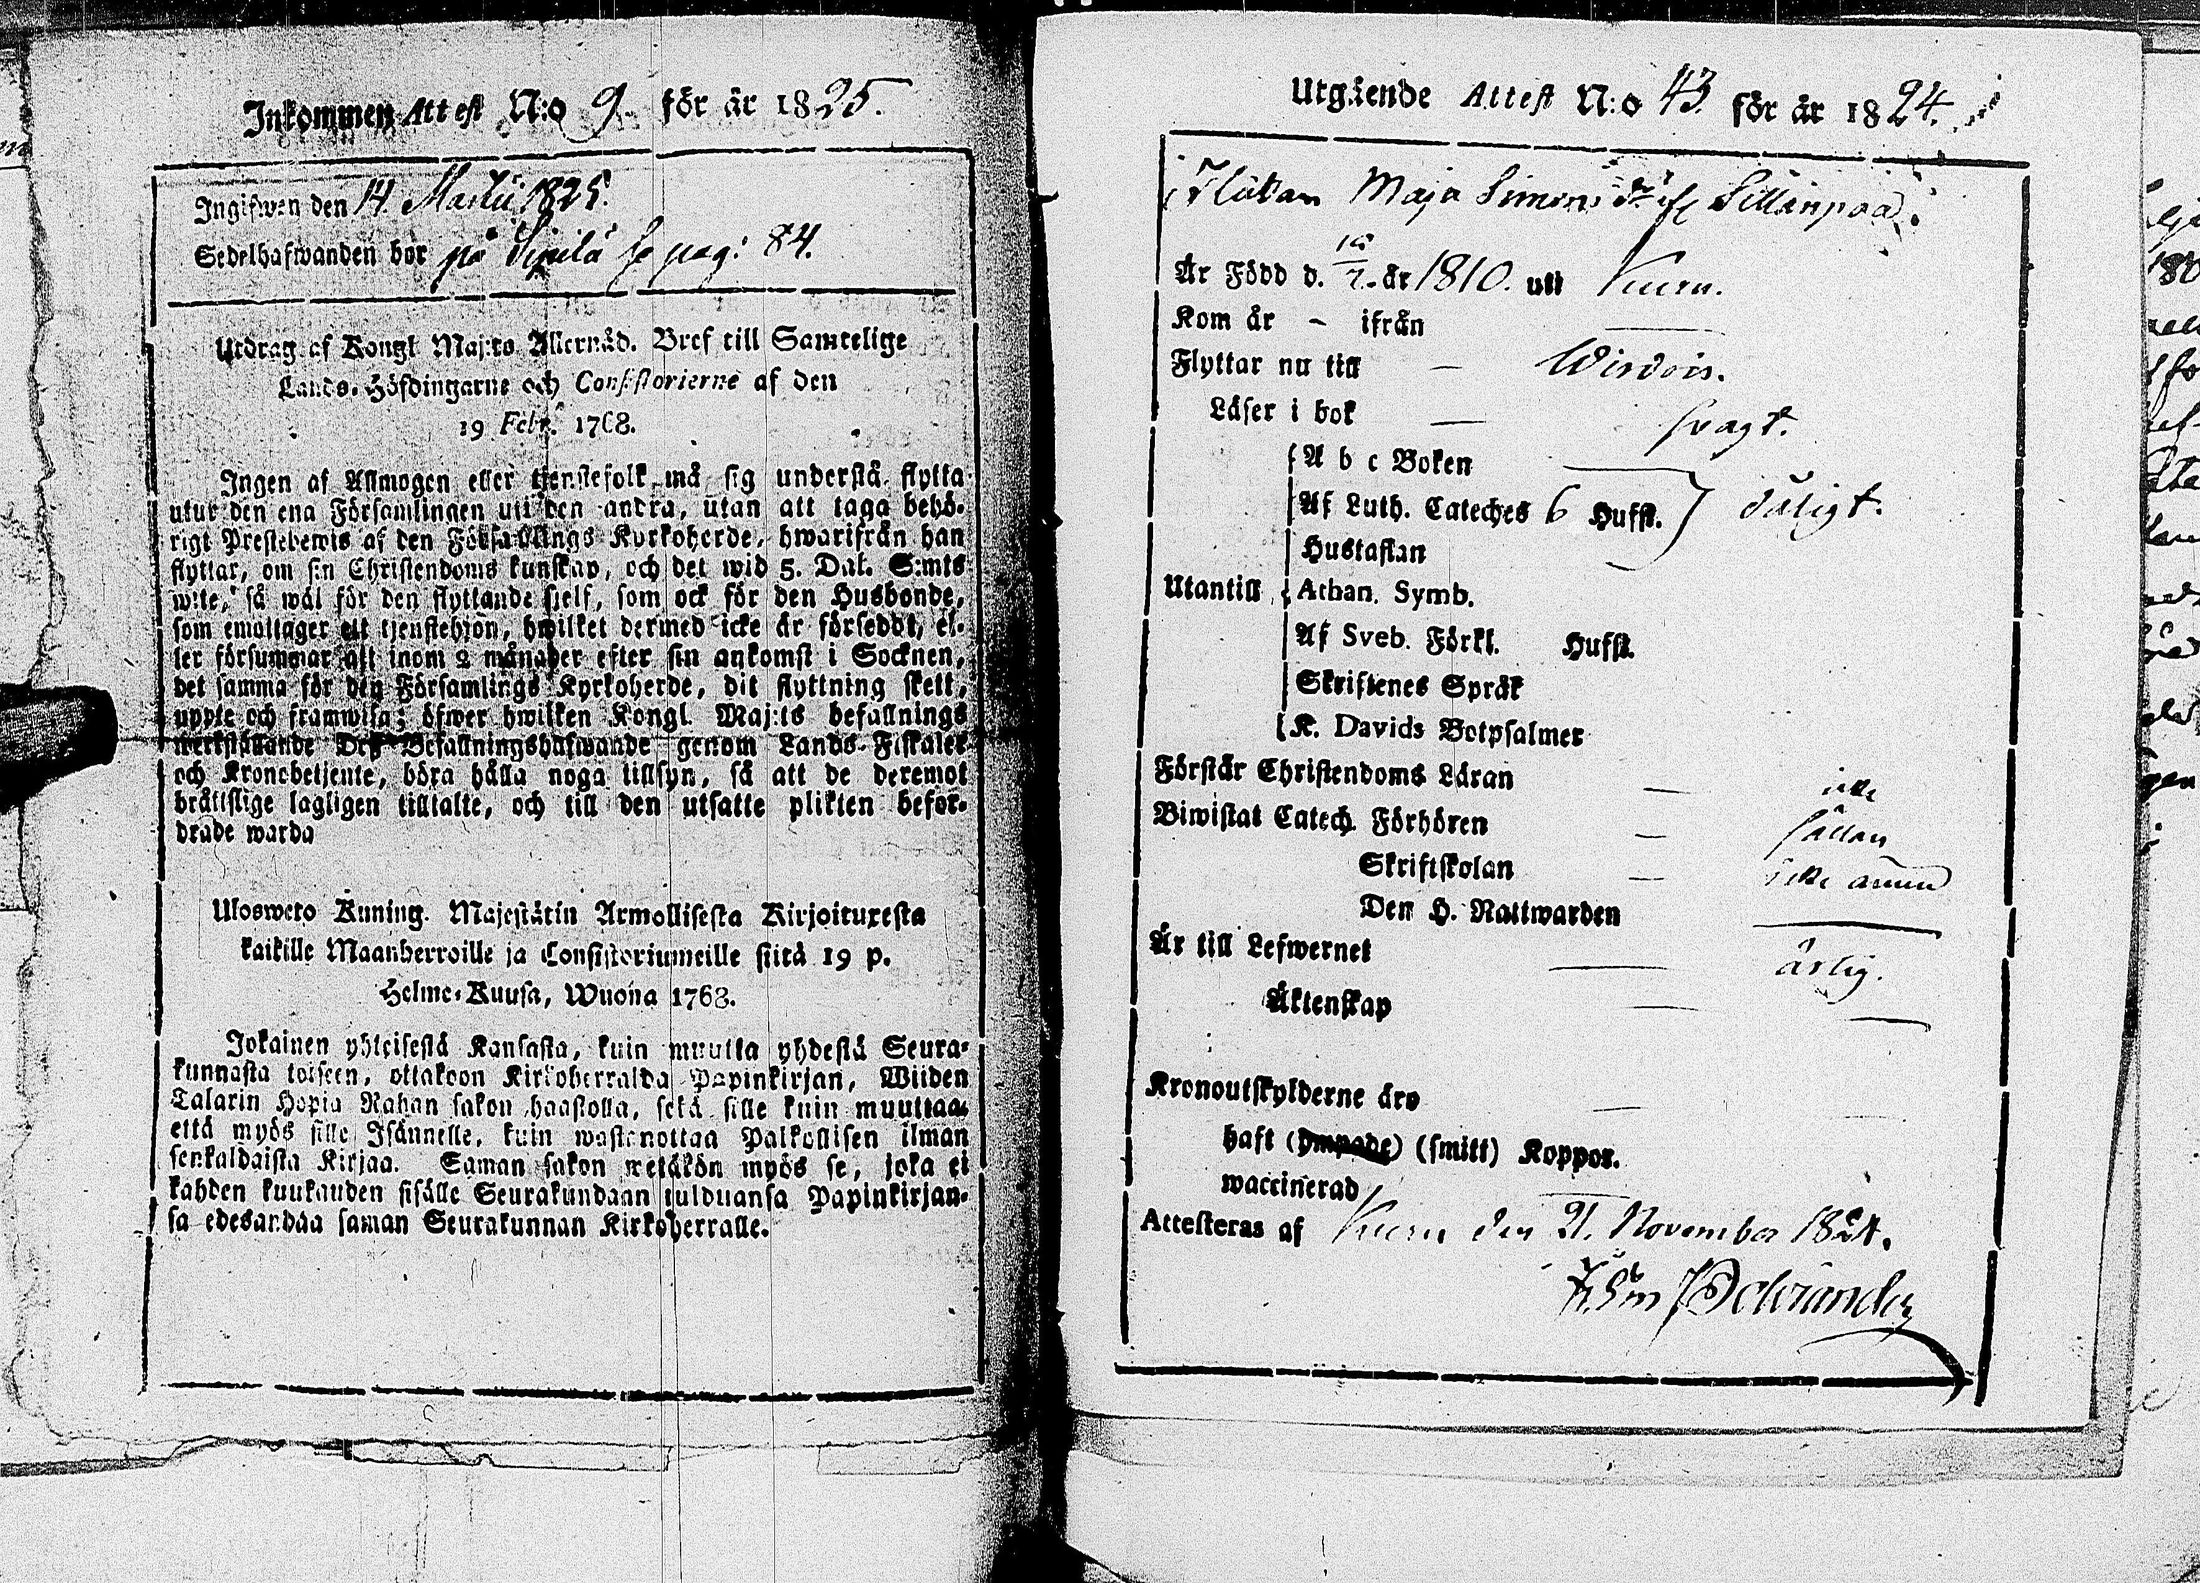 Inkommen Attest N:o 9. för år 1825.
Ingifwen den 14. Martii 1825.
Sedelhafwanden bor på Sipilä pag: 84.
Utdrag af Kongl Maj:ts Allernåd. Bref till Samtelige
Lands-Höfdingarne och Consistorierne af den
19 Febr. 1768.
Ingen af Allmogen eller tjenstefolk må sig understå flytta
utur den ena Församlingen uti den andra, utan att taga behö-
rigt Prestebewis af den Församlings Kyrkoherde, hwarifrån han
flyttar, om sin Christendoms kunskap, och det wid 5. Dal. S:mts
wite, så wäl för den flyttande sjelf, som ock för den Husbonde,
som emottager ett tjenstehjon, hwilket dermed icke är försedt, el-
ler försummar att inom 2 månader efter sin ankomst i Socknen,
det samma för den Församlings Kyrkoherde, dit flyttning skett,
uppte och framwisa; öfwer hwilken Kongl. Maj:ts befallnings
werkställande Dess Befallningshafwande genom Lands-Fiskaler
och Kronobetjente, böra hålla noga tillsyn, så att de deremot
bråttslige lagligen tilltalte, och till den utsatte plikten befor-
drade warda
Uloswето Kuning. Majestätin Armollisesta Kirjoituxesta
kaikille Maanherroille ja Consistoriumeille siitä 19 p.
Helme-Kuusa, Wuona 1768.
Jokainen yhteisestä Kansasta, kuin muutta yhdestä Seura-
kunnasta toiseen, ottakoon Kirkoherralda Papinkirjan, Wiiden
Talarin Hopia Rahan sakon haastolla, sekä sille kuin muuttaa,
että myös sille Isännelle, kuin wastanottaa Palkollisen ilman
senkaldaista Kirjaa. Saman sakon wetäkön myös se, joka ei
kahden kuukauden sisälle Seurakundaan tulduansa Papinkirjan-
sa edesandaa saman Seurakunnan Kirkoherralle.
Utgående Attest N:o 43. för år 1824.
Flickan Maja Simonsdr Sillänpää.
Är Född d. 18/7. år 1810. uti Kuru.
Kom år - ifrån
Flyttar nu till — Wirdois.
Läser i bok — svagt.
A b c Boken
Af Luth. Cateches 6 Hufst. dåligt.
Hustaflan
Utantill Athan. Symb.
Af Sveb. Förkl. Hufst.
Skriftenes Språk
K. Davids Botpsalmer
Förstår Christendoms Läran — icke
Biwistat Catech. Förhören — sällan
Skriftskolan — icke ännu
Den H. Nattwarden
Är till Lefwernet — ärlig.
Äktenskap —
Kronoutskylderne äro —
haft (ympade) (smitt) Koppor.
waccinerad
Attesteras af Kuru den 21. November 1824.